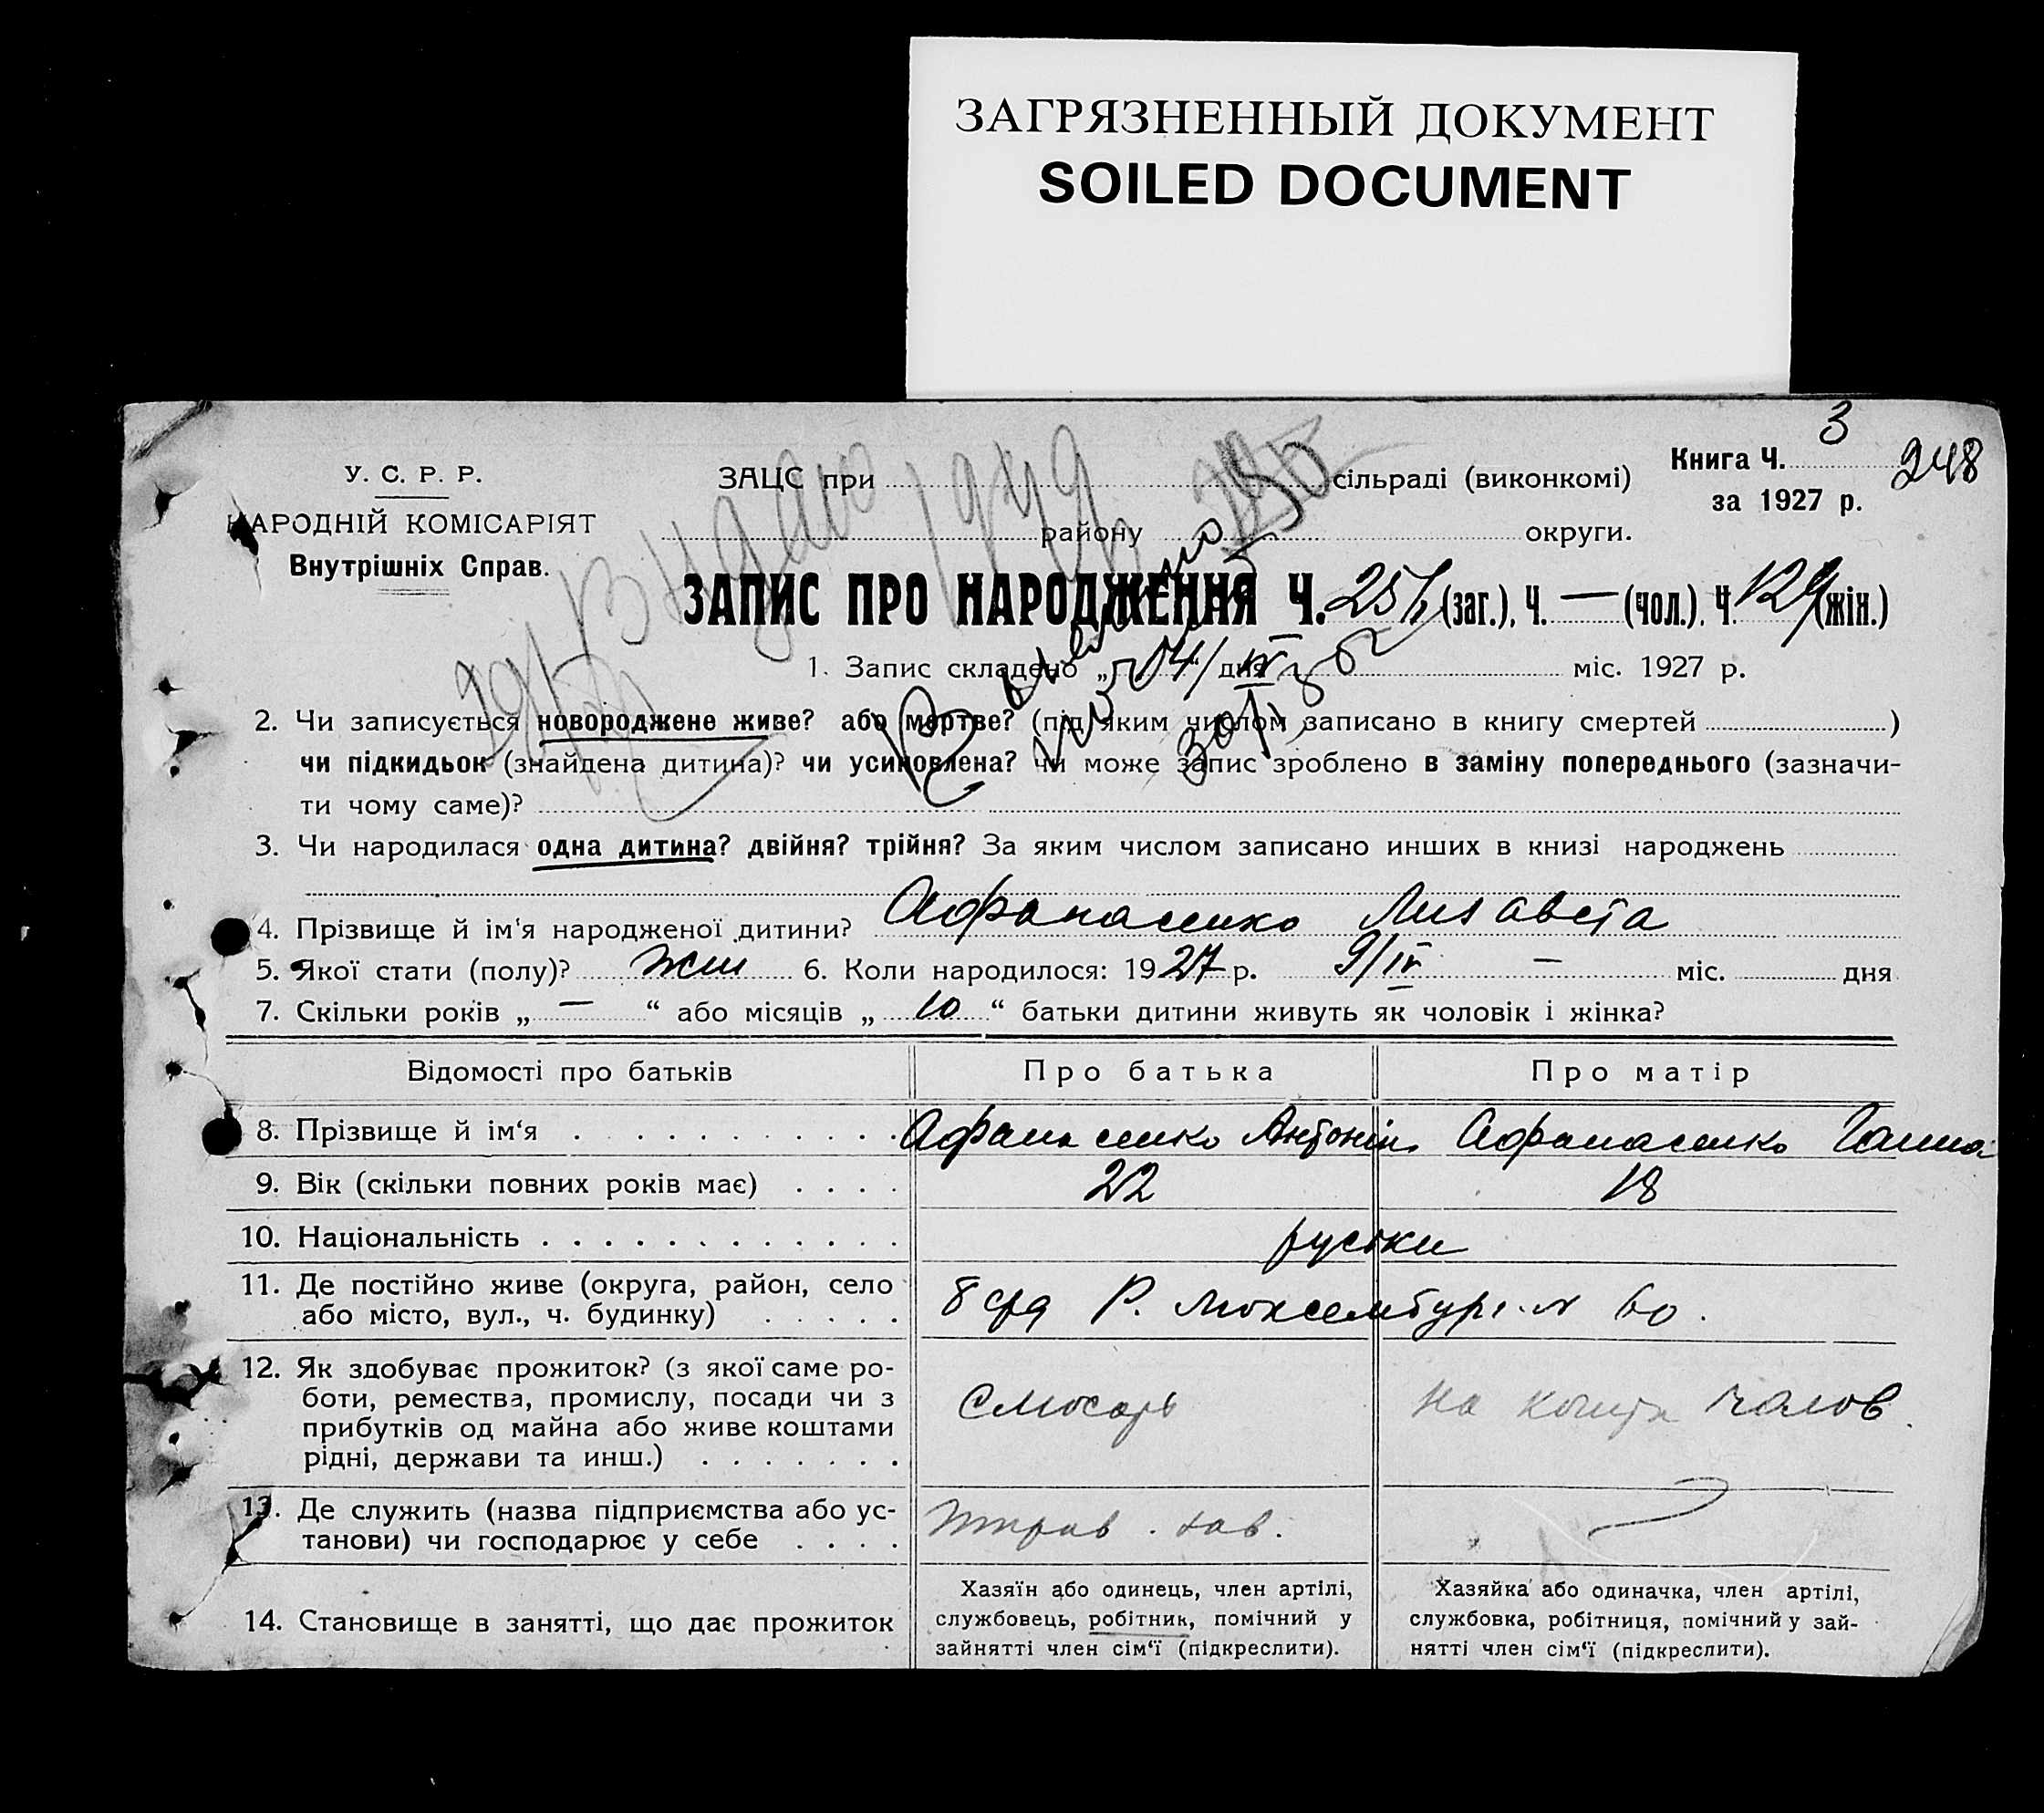 ЗАГРЯЗНЕННЫЙ ДОКУМЕНТ
SOILED DOCUMENT
3
248
У. С. Р. Р.
НАРОДНІЙ КОМІСАРІЯТ
Внутрішніх Справ.
ЗАЦС при сільраді (виконкомі)
району округи.
Книга Ч.
за 1927 р.
ЗАПИС ПРО НАРОДЖЕННЯ Ч. (заг.), Ч. — (чол.), Ч. 129 (жін.)
1. Запис складено „ дня міс. 1927 р.
2. Чи записується новороджене живе? або мертве? (під яким числом записано в книгу смертей )
чи підкидьок (знайдена дитина)? чи усиновлена? чи може запис зроблено в заміну попереднього (зазначи-
ти чому саме)?
3. Чи народилася одна дитина? двійня? трійня? За яким числом записано инших в книзі народжень
4. Прізвище й ім‘я народженої дитини? Афанасенко Лизавета
5. Якої стати (полу)? жін 6. Коли народилося: 1927 р. 9/IV — міс. дня
7. Скільки років „ — “ або місяців „ 10 “ батьки дитини живуть як чоловік і жінка?
Відомості про батьків Про батька Про матір
8. Прізвище й ім‘я Афанасенко Антонін Афанасенко Ганна
9. Вік (скільки повних років має) 22 18
10. Національність руські
11. Де постійно живе (округа, район, село
або місто, вул., ч. будинку)
Р. Люксембург. N 60.
12. Як здобуває прожиток? (з якої саме ро-
боти, ремества, промислу, посади чи з
прибутків од майна або живе коштами
рідні, держави та инш.)
Слюсарь на кошти чолов.
13. Де служить (назва підприємства або ус-
танови) чи господарює у себе
зав.
14. Становище в занятті, що дає прожиток
Хазяїн або одинець, член артілі,
службовець, робітник, помічний у
зайнятті член сім‘ї (підкреслити).
Хазяйка або одиначка, член артілі,
службовка, робітниця, помічний у зай-
нятті член сім‘ї (підкреслити).